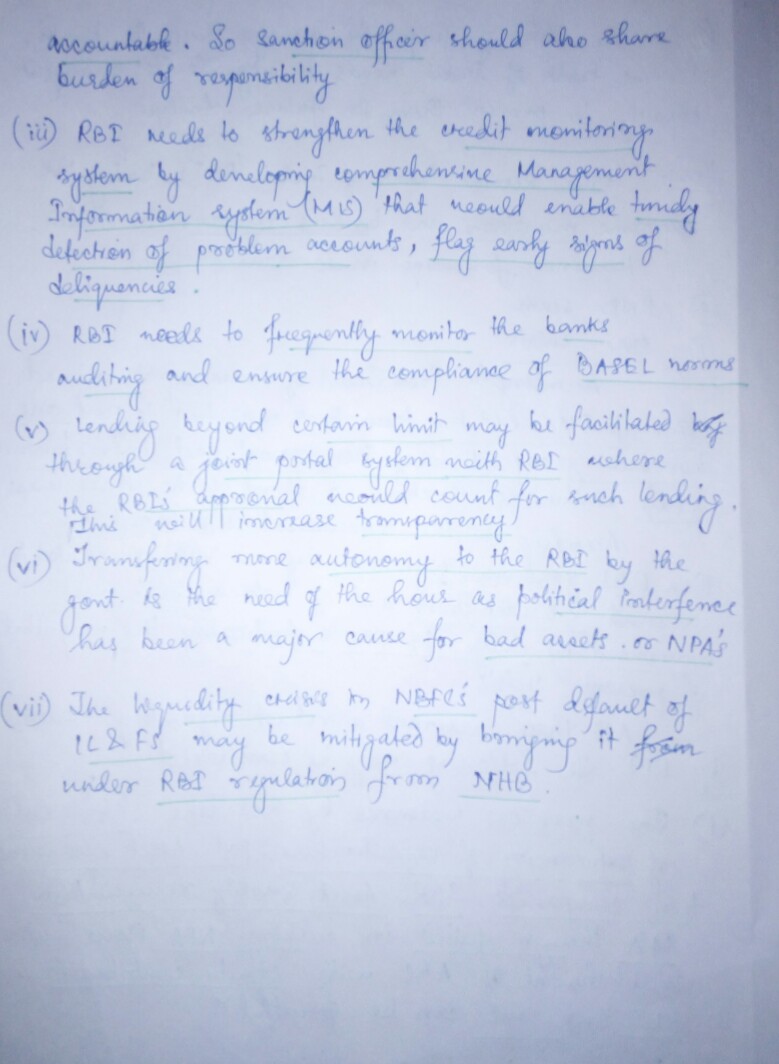 accountable. So sanction officer should also share
burden of responsibility
(iii) RBI needs to strengthen the credit monitoring
system by developing comprehensive Management
Information system (MIS) that would enable timely
detection of problem accounts, flag early signs of
deliquencies.
(iv) RBI needs to frequently monitor the banks
auditing and ensure the compliance of BASEL norms
(v) Lending beyond certain limit may be facilitated
through a joint portal system with RBI where
the RBI's approval would count for such lending.
This will increase transparency
(vi) Transfering more autonomy to the RBI by the
govt. is the need of the hour as political interfence
has been a major cause for bad assets. or NPA's
(vii) The liquidity crisis in NBFC's post default of
IL & FS may be mitigated by bringing it from
under RBI regulation from NHB.